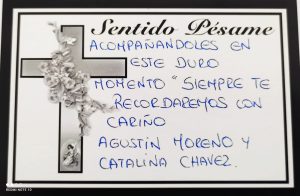 Sentido Pésame
ACOMPAÑANDOLES EN
ESTE DURO
MOMENTO "SIEMPRE TE
RECORDAREMOS CON
CARIÑO
AGUSTÍN MORENO Y
CATALINA CHAVEZ.
REDMI NOTE 10